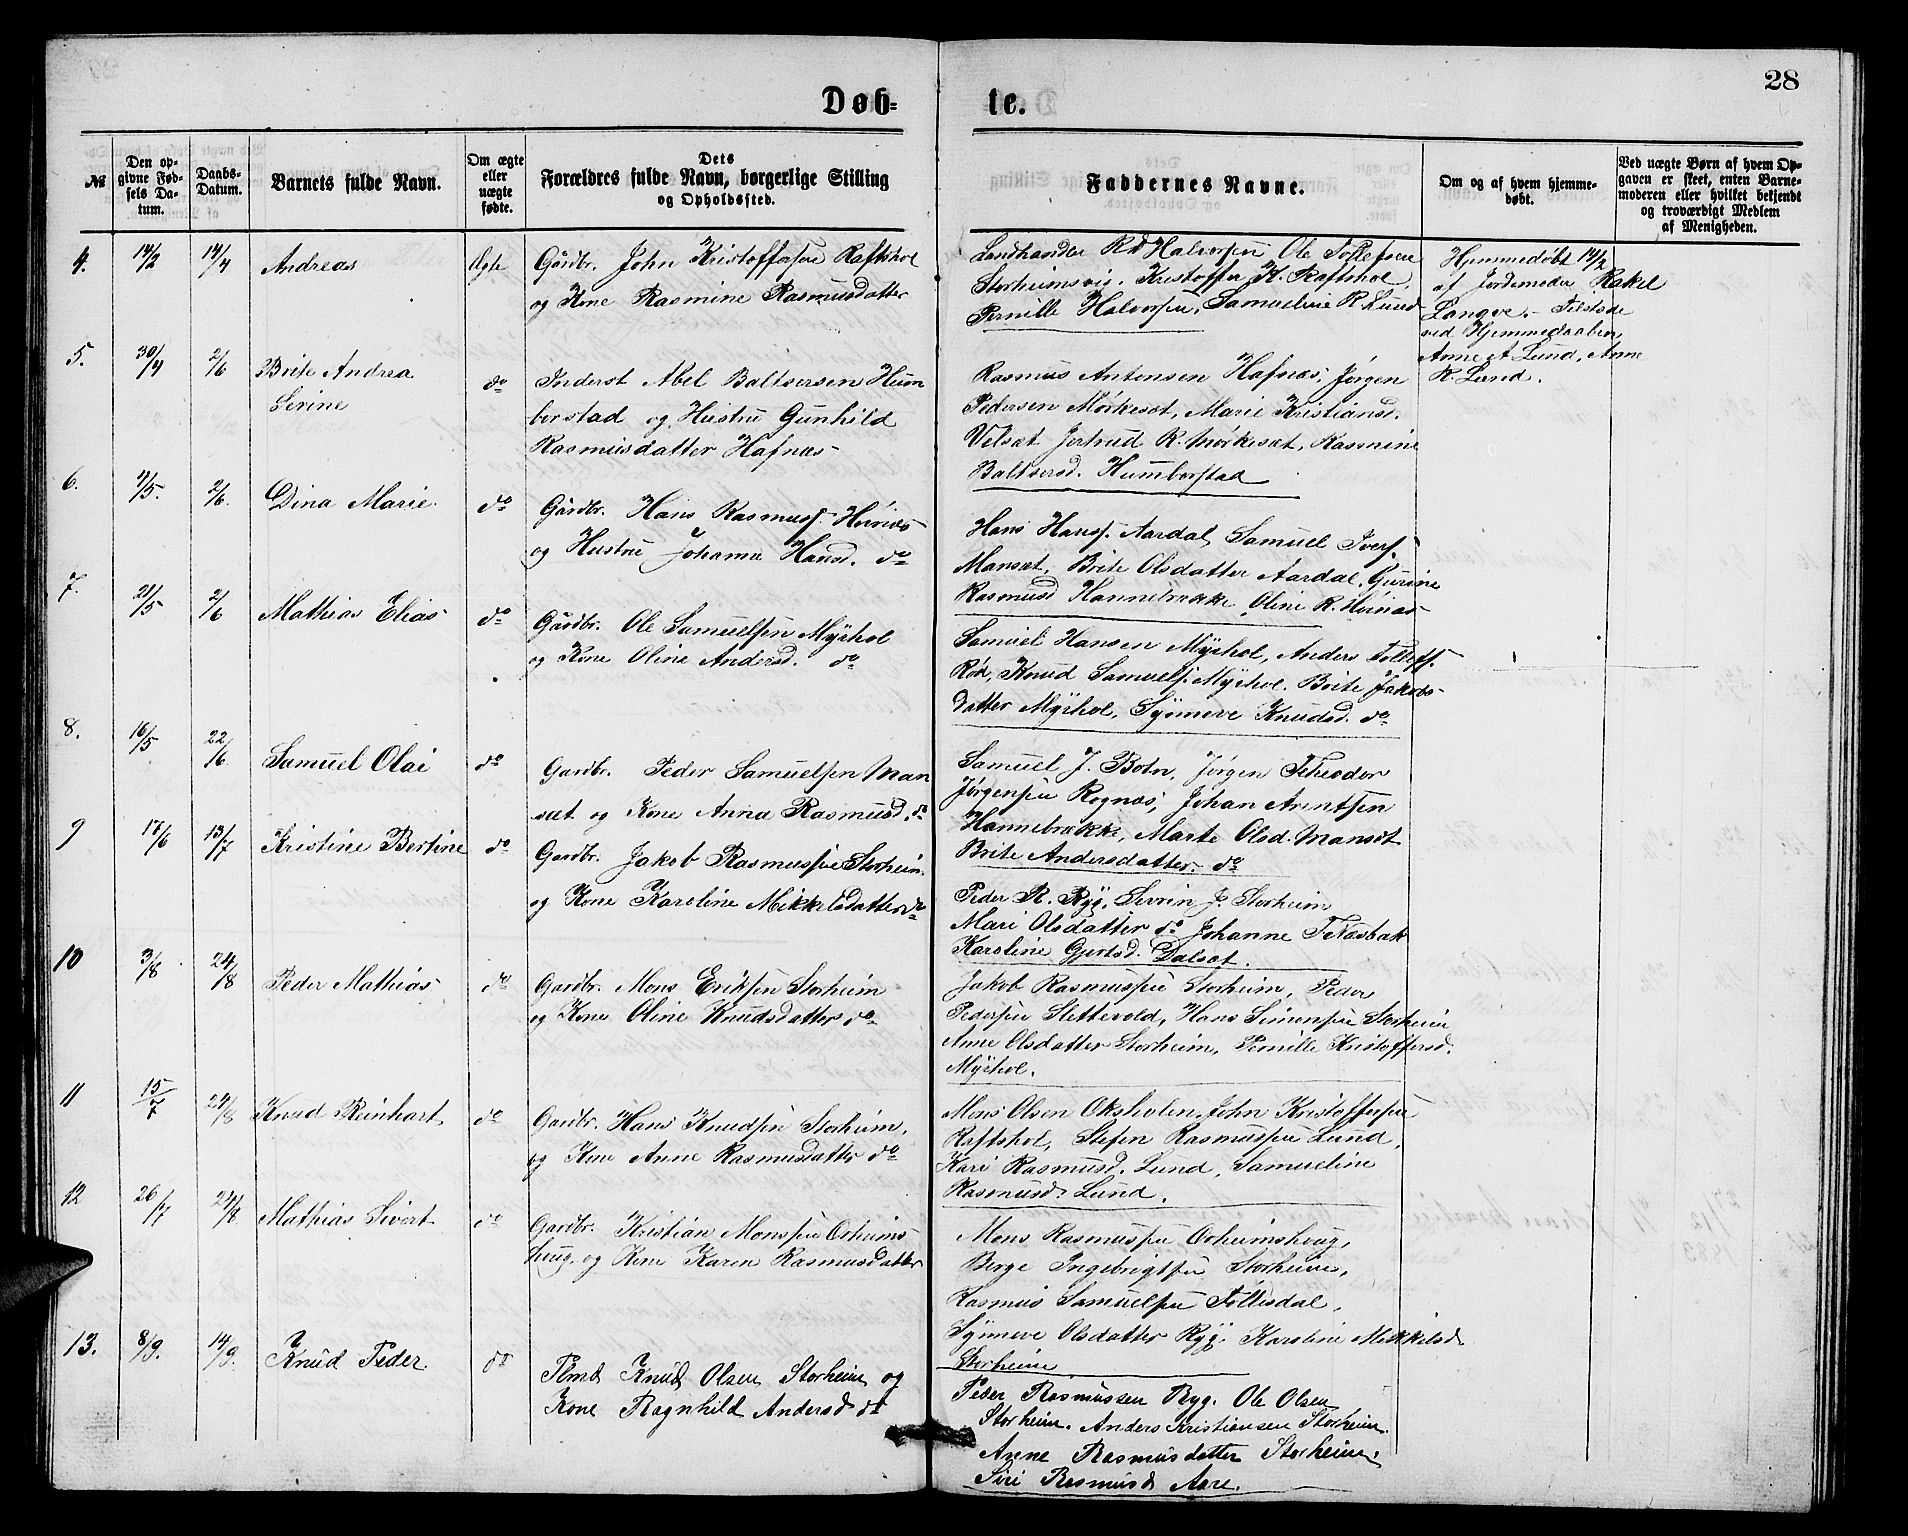 28
Døb= te.
№
Den op-
givne Fød-
sels Da-
tum.
Daabs-
Datum.
Barnets fulde Navn.
Om ægte
eller
uægte
fødte.
Dets
Forældres fulde Navn, borgerlige Stilling
og Opholdssted.
Faddernes Navne.
Om og af hvem hjemme-
døbt.
Ved uægte Børn af hvem Op-
gaven er skeet, enten Barne-
moderen eller hvilket bekjendt
og troværdigt Medlem
af Menigheden.
4. 14/2 14/4 Andreas Ægte
Gårdbr. John Kristoffersen Raftshol
og Kone Rasmine Rasmusdatter
Landhandler R Halvorsen Ole Tollefsen
Storheimsvig. Kristoffer K. Raftshol,
Pernille Halvorsen, Samueline R. Lund
Hjemmedøbt 14/2
af Jordemoder Rakel
Langve. – Tilstede
ved Hjemmedaaben,
Anne A Lund, Anne
R. Lund.
5. 30/4 2/6 Brite Andrea
Serine
do
Inderst Abel Baltsersen Hum
borstad og Hustru Gunhild
Rasmusdatter Hafnæs
Rasmus Antonsen Hafnæs, Jørgen
Pedersen Mørkesæt, Marie Kristiansd.
Velsæt Jertrud R. Mørkesæt, Rasmine
Baltsersd. Humborstad
6. 4/5. 2/6. Dina Marie. do
Gårdbr. Hans Rasmuss. Hvinæs
og Hustru Johanna Hansd. do
Hans Hanss. Aardal, Samuel Ivers.
Mansæt, Brite Olsdatter Aardal, Gurine
Rasmusd Hannebrække, Oline R. Hvinæs
7. 21/5 2/6 Mathias Elias do
Gårdbr. Ole Samuelsen Myrhol
og Kone Oline Andersd. do
Samuel Hansen Myrhol, Anders Tollefs.
Røk, Knud Samuels. Myrhol. Brite Jakobs-
datter Myrhol, Synneve Knudsd. do
8. 16/5 22/6. Samuel Olai do
Gardbr. Peder Samuelsen Man
sæt og Kone Anna Rasmusd. do
Samuel J. Botn, Jørgen Theodor
Jørgensen Rognæs, Johan Arentsen
Hannebrække, Marte Olsd. Mansæt
Brite Andersdatter. do
9 17/6 13/7 Kristine Bertine do
Gardbr. Jakob Rasmussen Storheim
og Kone Karoline Mikkelsdatter do
Peder R. Ryg, Sevrin J. Storheim
Mari Olsdatter do Johanne T Næsbak
Karoline Gjertsd. Dalsæt.
10 3/8 24/8 Peder Mathias do
Gardbr. Mons Eriksen Storheim
og Kone Oline Knudsdatter do
Jakob Rasmussen Storheim, Peder
Pedersen Slettevold, Hans Simonsen Storheim
Anne Olsdatter Storheim, Pernille Kristoffersd.
Myrhol.
11 15/7 24/8 Knud Reinhart do
Gardbr. Hans Knudsen Storheim,
og Kone Anne Rasmusdatter do
Mons Olsen Oksholen, John Kristoffersen
Raftshol, Stefen Rasmussen Lund,
Kari Rasmusd. Lund, Samueline
Rasmusd. Lund.
12 26/7 24/8. Mathias Sivert do
Gardbr. Kristian Monssen Orheims
houg, og Kone Karen Rasmusdatter
Mons Rasmussen Orheimshoug,
Berge Ingebrigtsen Storheim,
Rasmus Samuelsen Tollisdal,
Synneve Olsdatter Ryg. Karoline Mikkelsd
Storheim
13. 8/9. 14/9. Knud Peder. do
Knud Olsen Storheim og
Kone Ragnhild Andersd do
Peder Rasmussen Ryg. Ole Olsen
Storheim. Anders Kristiansen Storheim.
Anne Rasmusdatter Storheim.
Siri Rasmusd Aare.